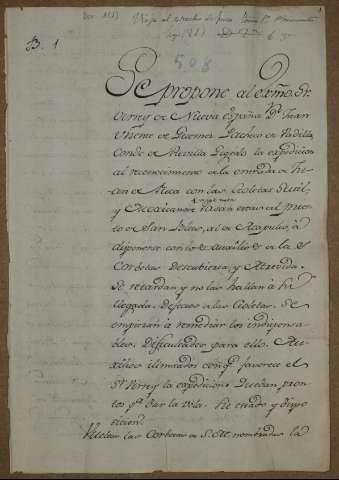 B. 1
508
Se propone al exmo. Sr.
Virrey de Nueva España Dn. Juan
Vicente de Guemes Pacheco de Padilla
Conde de Revilla Gigedo la expedicion
al reconocimiento de la entrada de Juan
de Fuca con las Goletas Sutil,
y Mexicana: Pasan estas del puer-
to de San Blas, al de Acapulco, à
disponerse con los auxilios de las
Corbetas Descubierta, y Atrevida.
Se retardan y no las hallan à su
llegada. Defectos de las Goletas. Se
empiezan à remediar los indispensa-
bles. Dificultades para ello. Au-
xîlios ilimitados con qe. favorece el
Sr. Virrey la expedicion. Quedan pron-
tos pa. dar la vela. Su estado y dispo-
sicion.
las Corbetas de S. M. nombradas la